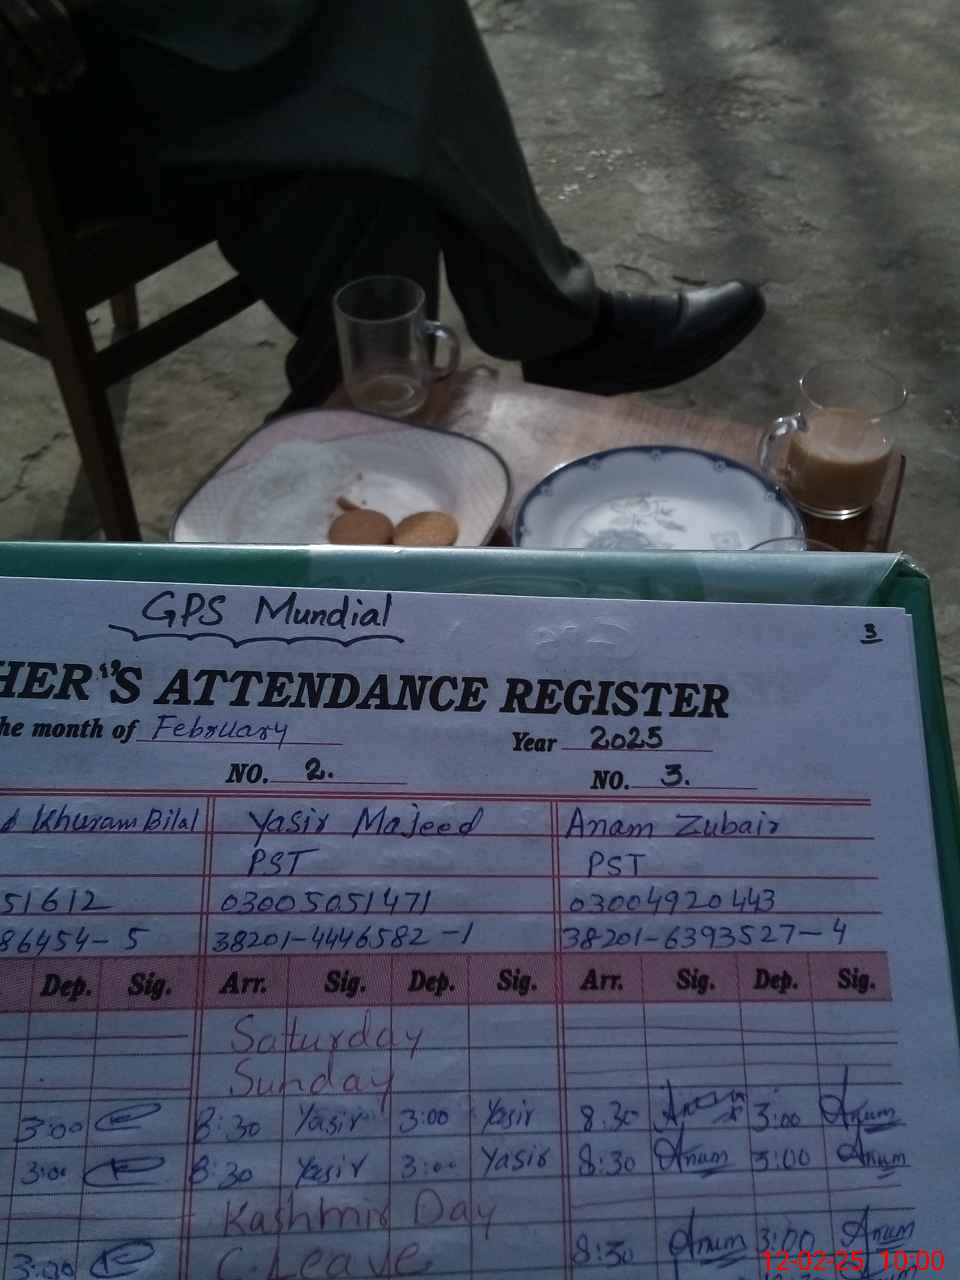 GPS Mundial
3
HER'S ATTENDANCE REGISTER
he month of February Year 2025
NO. 2. NO. 3.
d Khuram Bilal Yasir Majeed Anam Zubair
PST PST
51612 03005051471 03004920443
86454-5 38201-4446582-1 38201-6393527-4
Dep. Sig. Arr. Sig. Dep. Sig. Arr. Sig. Dep. Sig.
Saturday
Sunday
3:00 8:30 Yasir 3:00 Yasir 8:30 3:00 Anum
3:00 8:30 Yasir 3:00 Yasir 8:30 Anum 3:00 Anum
Kashmir Day
3:00 C.Leave 8:30 Anum 3:00 Anum
12-02-25 10:00